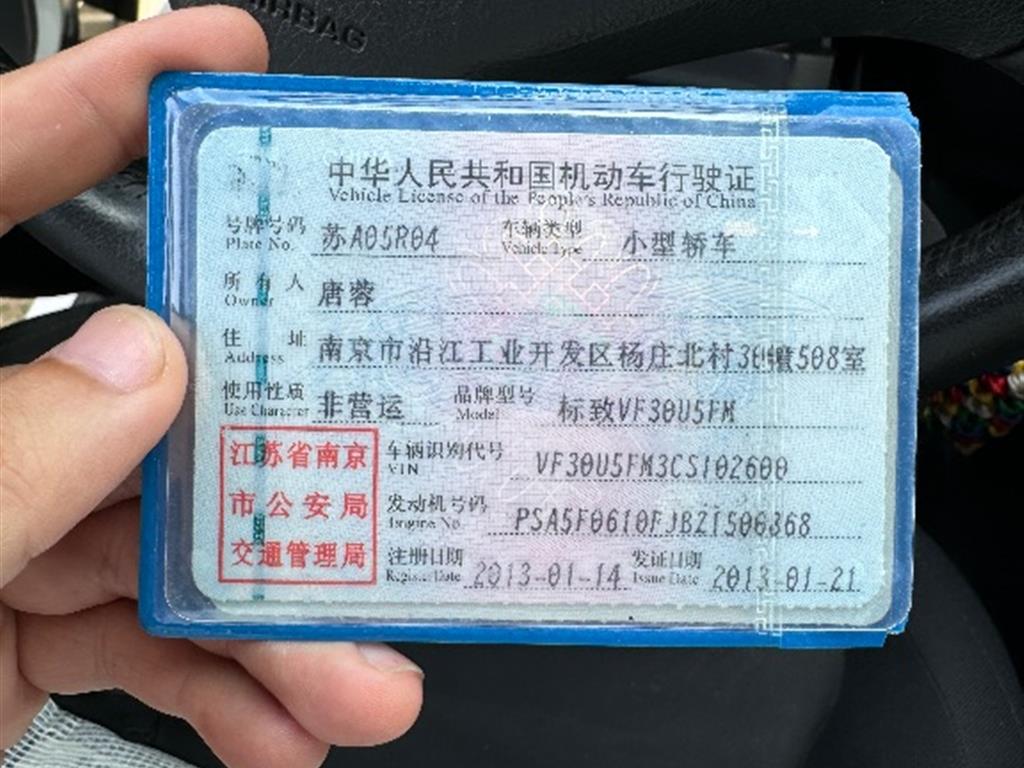 AIRBAG
中华人民共和国机动车行驶证
Vehicle License of the People's Republic of China
号牌号码 苏A05R04 车辆类型 小型轿车
Plate No. Vehicle Type
所有人 唐蓉
Owner
住址 南京市沿江工业开发区杨庄北村30幢508室
Address
使用性质 非营运 品牌型号 标致VF30U5FM
Use Character Model
江苏省南京
市公安局
交通管理局
车辆识别代号 VF30U5FM3CS102600
VIN
发动机号码
Engine No.
注册日期 2013-01-14 发证日期 2013-01-21
Register Date Issue Date